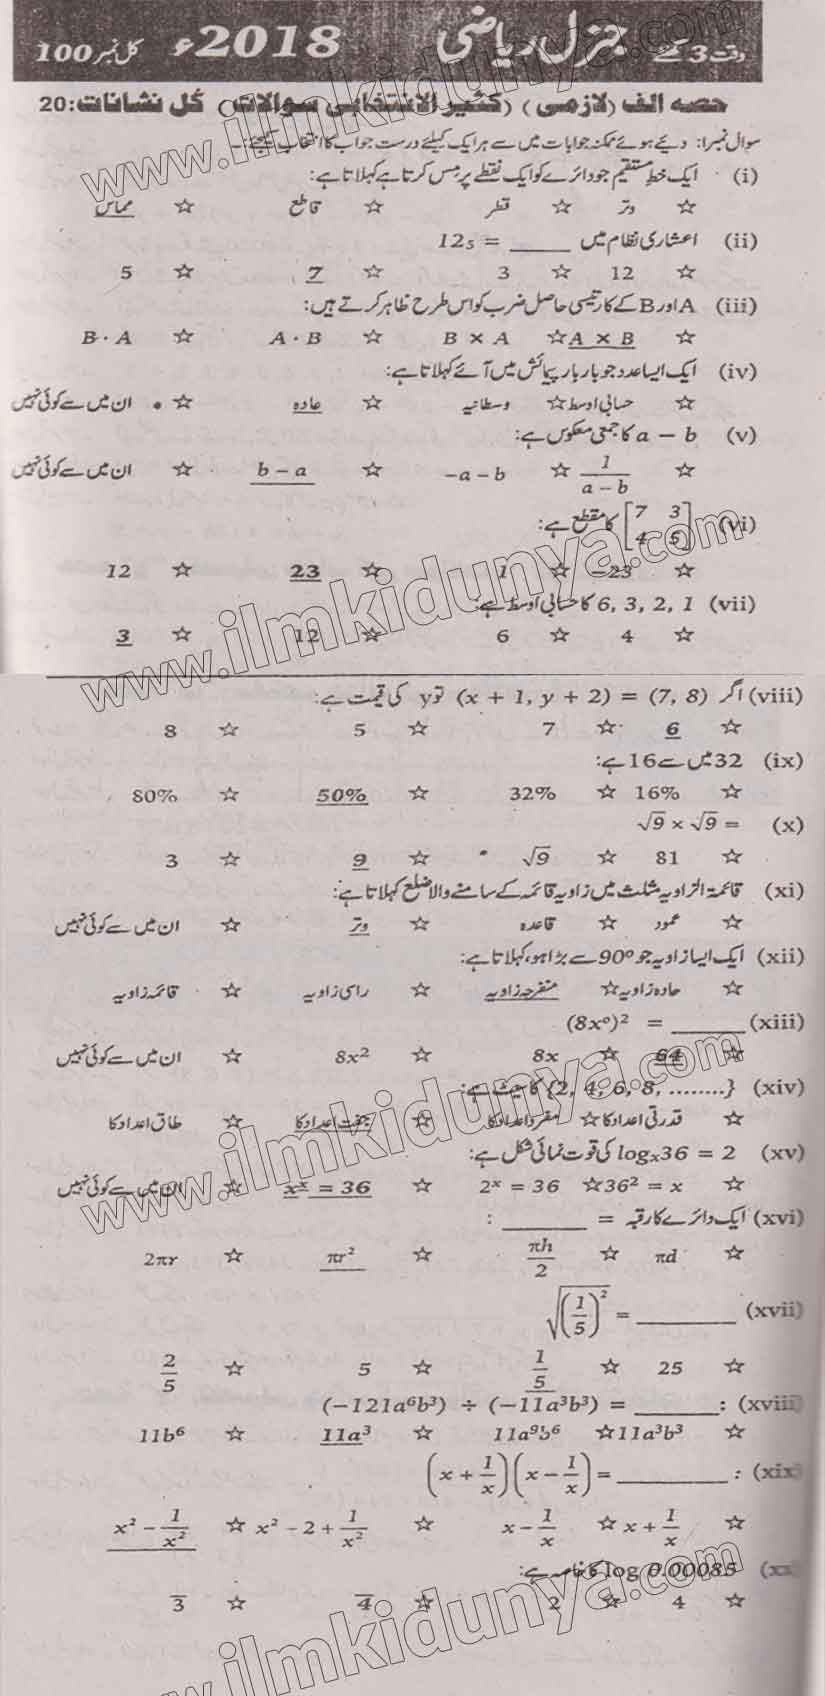 وقت 3 گھنٹے جنرل ریاضی 2018ء کل نمبر 100
حصہ الف (لازمی) (کثیر الانتخابی سوالات) کل نشانات: 20
سوال نمبر 1: دیئے ہوئے ممکنہ جوابات میں سے ہر ایک کیلئے درست جواب کا انتخاب کیجئے:۔
(i) ایک خط مستقیم جو دائرے کو ایک نقطے پر مس کرتا ہے کہلاتا ہے:
☆ وتر ☆ قطر ☆ قاطع ☆ مماس
(ii) اعشاری نظام میں _____ = 12₅
☆ 12 ☆ 3 ☆ 7 ☆ 5
(iii) A اور B کے کارتیسی حاصل ضرب کو اس طرح ظاہر کرتے ہیں:
☆ A × B ☆ B × A ☆ A · B ☆ B · A
(iv) ایک ایسا عدد جو بار بار پیمائش میں آئے کہلاتا ہے:
☆ حسابی اوسط ☆ وسطانیہ ☆ عادہ ☆ ان میں سے کوئی نہیں
(v) a – b کا جمعی معکوس ہے:
☆ 1/(a – b) ☆ –a – b ☆ b – a ☆ ان میں سے کوئی نہیں
(vi) [7 3; 4 5] کا مقطع ہے:
☆ –23 ☆ 1 ☆ 23 ☆ 12
(vii) 6, 3, 2, 1 کا حسابی اوسط ہے:
☆ 4 ☆ 6 ☆ 12 ☆ 3
(viii) اگر (x + 1, y + 2) = (7, 8) تو y کی قیمت ہے:
☆ 6 ☆ 7 ☆ 5 ☆ 8
(ix) 32 میں سے 16 ہے:
☆ 16% ☆ 32% ☆ 50% ☆ 80%
(x) √9 × √9 =
☆ 81 ☆ √9 ☆ 9 ☆ 3
(xi) قائمۃ الزاویہ مثلث میں زاویہ قائمہ کے سامنے والا ضلع کہلاتا ہے:
☆ عمود ☆ قاعدہ ☆ وتر ☆ ان میں سے کوئی نہیں
(xii) ایک ایسا زاویہ جو 90° سے بڑا ہو، کہلاتا ہے:
☆ حادہ زاویہ ☆ منفرجہ زاویہ ☆ راسی زاویہ ☆ قائمہ زاویہ
(xiii) (8x⁰)² = ________
☆ 64 ☆ 8x ☆ 8x² ☆ ان میں سے کوئی نہیں
(xiv) {2, 4, 6, 8, ........} کا سیٹ ہے:
☆ قدرتی اعداد کا ☆ مفرد اعداد کا ☆ جفت اعداد کا ☆ طاق اعداد کا
(xv) logₓ36 = 2 کی قوت نمائی شکل ہے:
☆ 36² = x ☆ 2ˣ = 36 ☆ xˣ = 36 ☆ ان میں سے کوئی نہیں
(xvi) ایک دائرے کا رقبہ = ________ :
☆ πd ☆ πh/2 ☆ πr² ☆ 2πr
(xvii) √(1/5)² = __________
☆ 25 ☆ 1/5 ☆ 5 ☆ 2/5
(xviii) (–121a⁶b³) ÷ (–11a³b³) = _______ :
☆ 11a³b³ ☆ 11a⁹b⁶ ☆ 11a³ ☆ 11b⁶
(xix) (x + 1/x)(x – 1/x) = __________ :
☆ x + 1/x ☆ x – 1/x ☆ x² – 2 + 1/x² ☆ x² – 1/x²
(xx) log 0.00085 کا خاصہ ہے:
☆ 4 ☆ 2 ☆ 4̅ ☆ 3̅
www.ilmkidunya.com
www.ilmkidunya.com
www.ilmkidunya.com
www.ilmkidunya.com